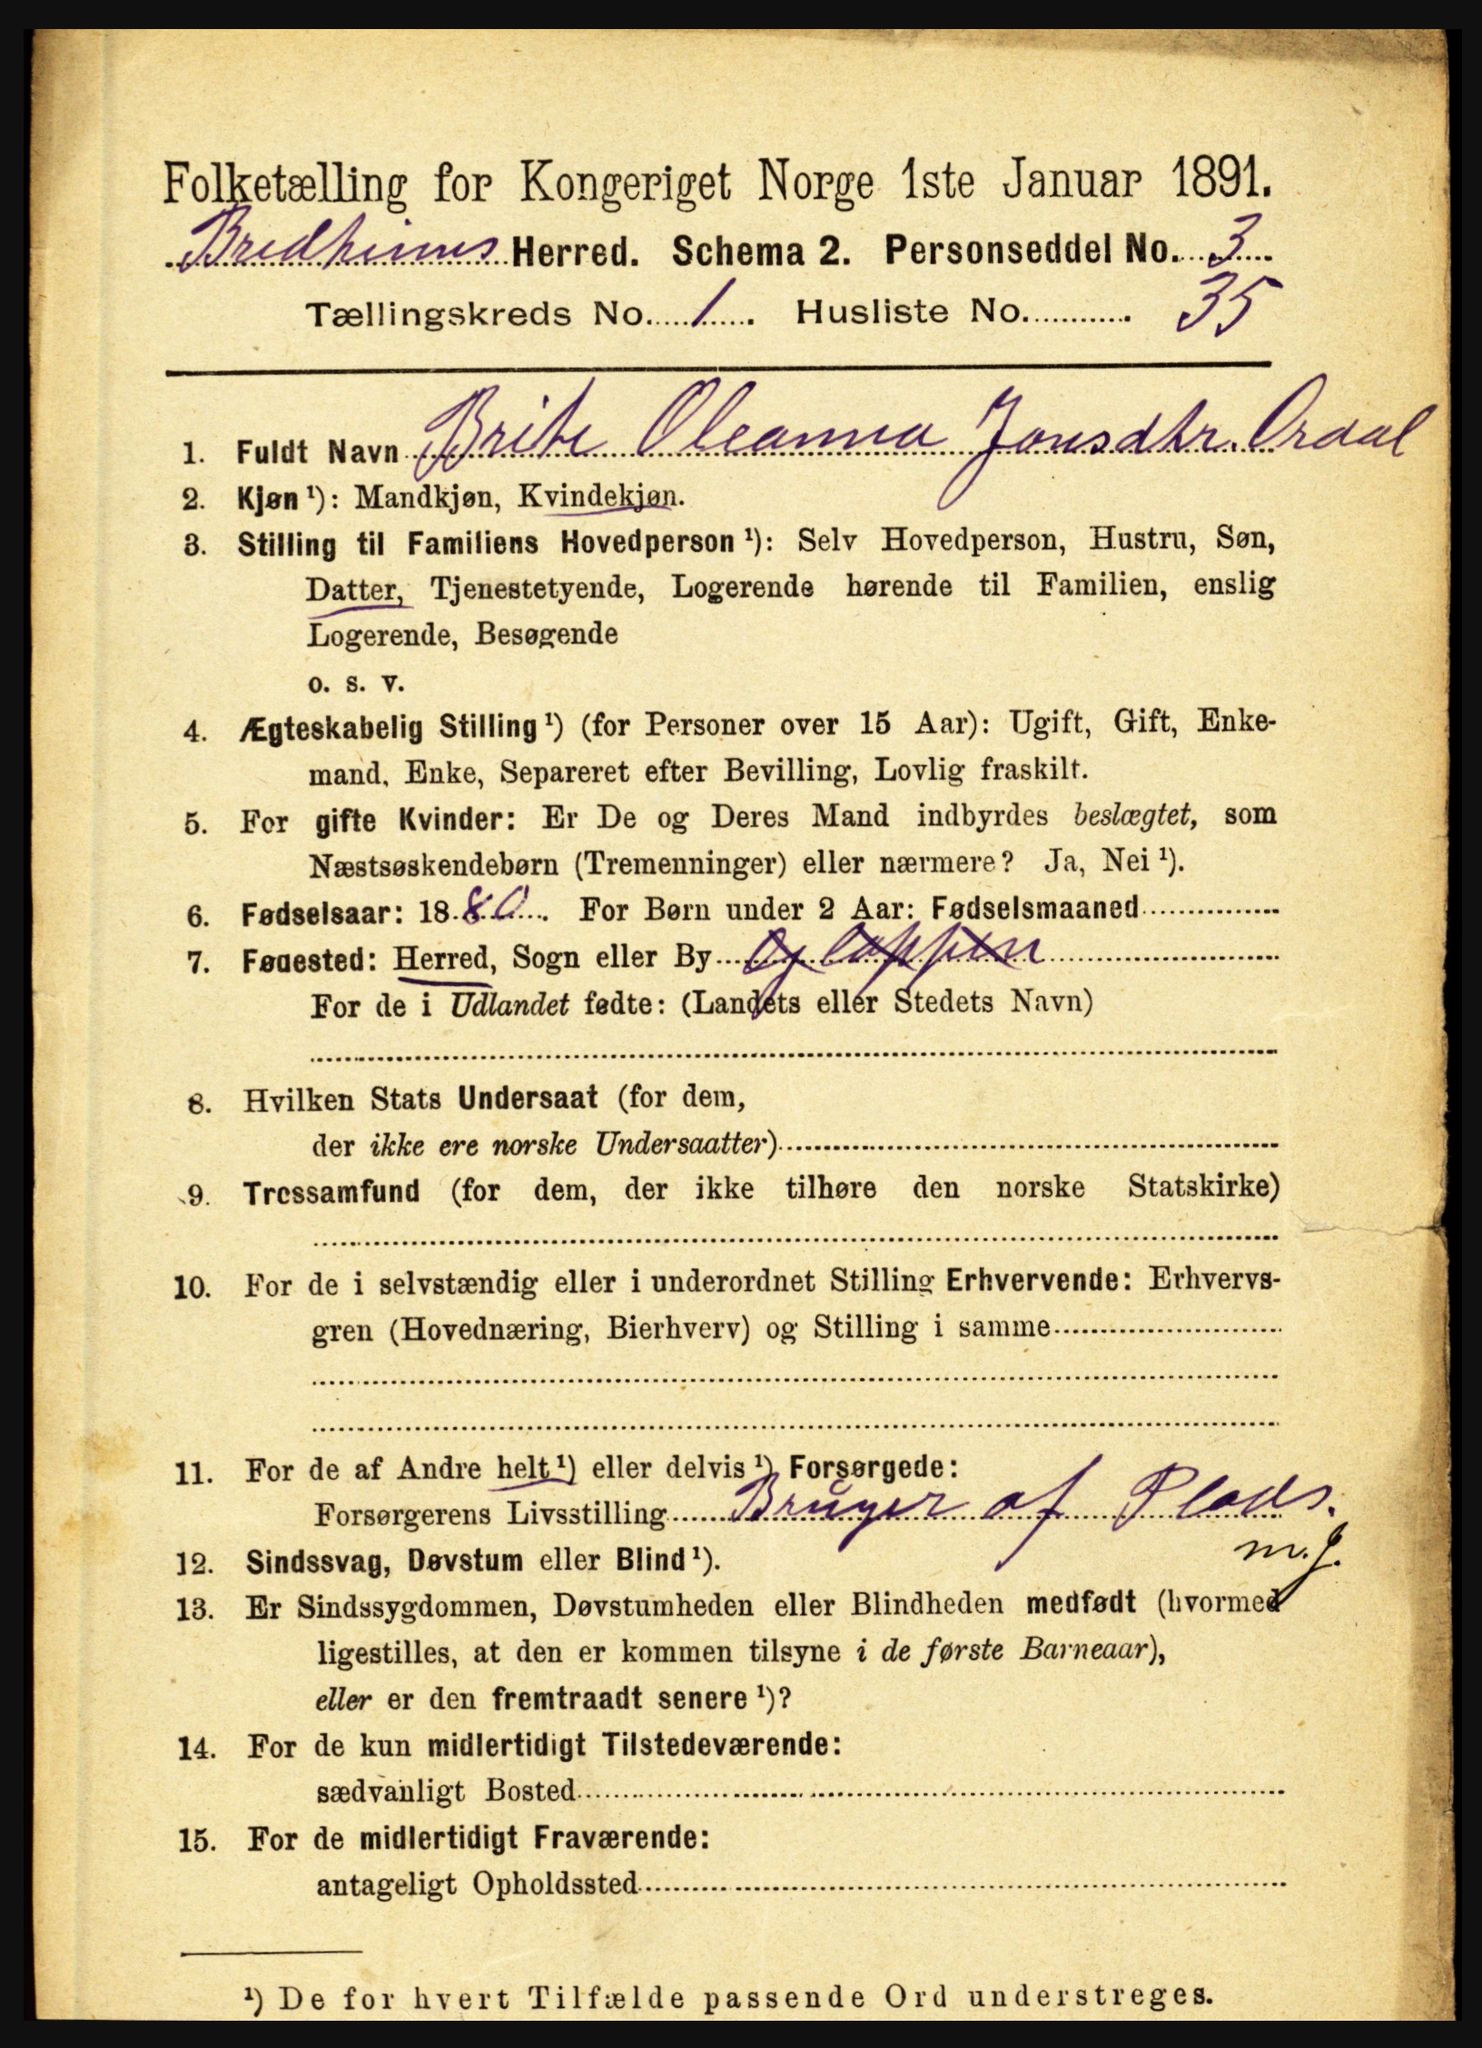 Folketælling for Kongeriget Norge 1ste Januar 1891.
Bredheims Herred. Schema 2. Personseddel No. 3
Tællingskreds No. 1. Husliste No. 35
1. Fuldt Navn Brite Oleanna Jonsdtr. Ordal
2. Kjøn ¹): Mandkjøn, Kvindekjøn.
3. Stilling til Familiens Hovedperson ¹): Selv Hovedperson, Hustru, Søn,
Datter, Tjenestetyende, Logerende hørende til Familien, enslig
Logerende, Besøgende
o. s. v.
4. Ægteskabelig Stilling ¹) (for Personer over 15 Aar): Ugift, Gift, Enke-
mand, Enke, Separeret efter Bevilling, Lovlig fraskilt.
5. For gifte Kvinder: Er De og Deres Mand indbyrdes beslægtet, som
Næstsøskendebørn (Tremenninger) eller nærmere? Ja, Nei ¹).
6. Fødselsaar: 1880. For Børn under 2 Aar: Fødselsmaaned
7. Fødested: Herred, Sogn eller By Gloppen
For de i Udlandet fødte: (Landets eller Stedets Navn)
8. Hvilken Stats Undersaat (for dem,
der ikke ere norske Undersaatter)
9. Trossamfund (for dem, der ikke tilhøre den norske Statskirke)
10. For de i selvstændig eller i underordnet Stilling Erhvervende: Erhvervs-
gren (Hovednæring, Bierhverv) og Stilling i samme
11. For de af Andre helt ¹) eller delvis ¹) Forsørgede:
Forsørgerens Livsstilling Bruger af Plads.
m.J.
12. Sindssvag, Døvstum eller Blind ¹).
13. Er Sindssygdommen, Døvstumheden eller Blindheden medfødt (hvormed
ligestilles, at den er kommen tilsyne i de første Barneaar),
eller er den fremtraadt senere ¹)?
14. For de kun midlertidigt Tilstedeværende:
sædvanligt Bosted
15. For de midlertidigt Fraværende:
antageligt Opholdssted
¹) De for hvert Tilfælde passende Ord understreges.